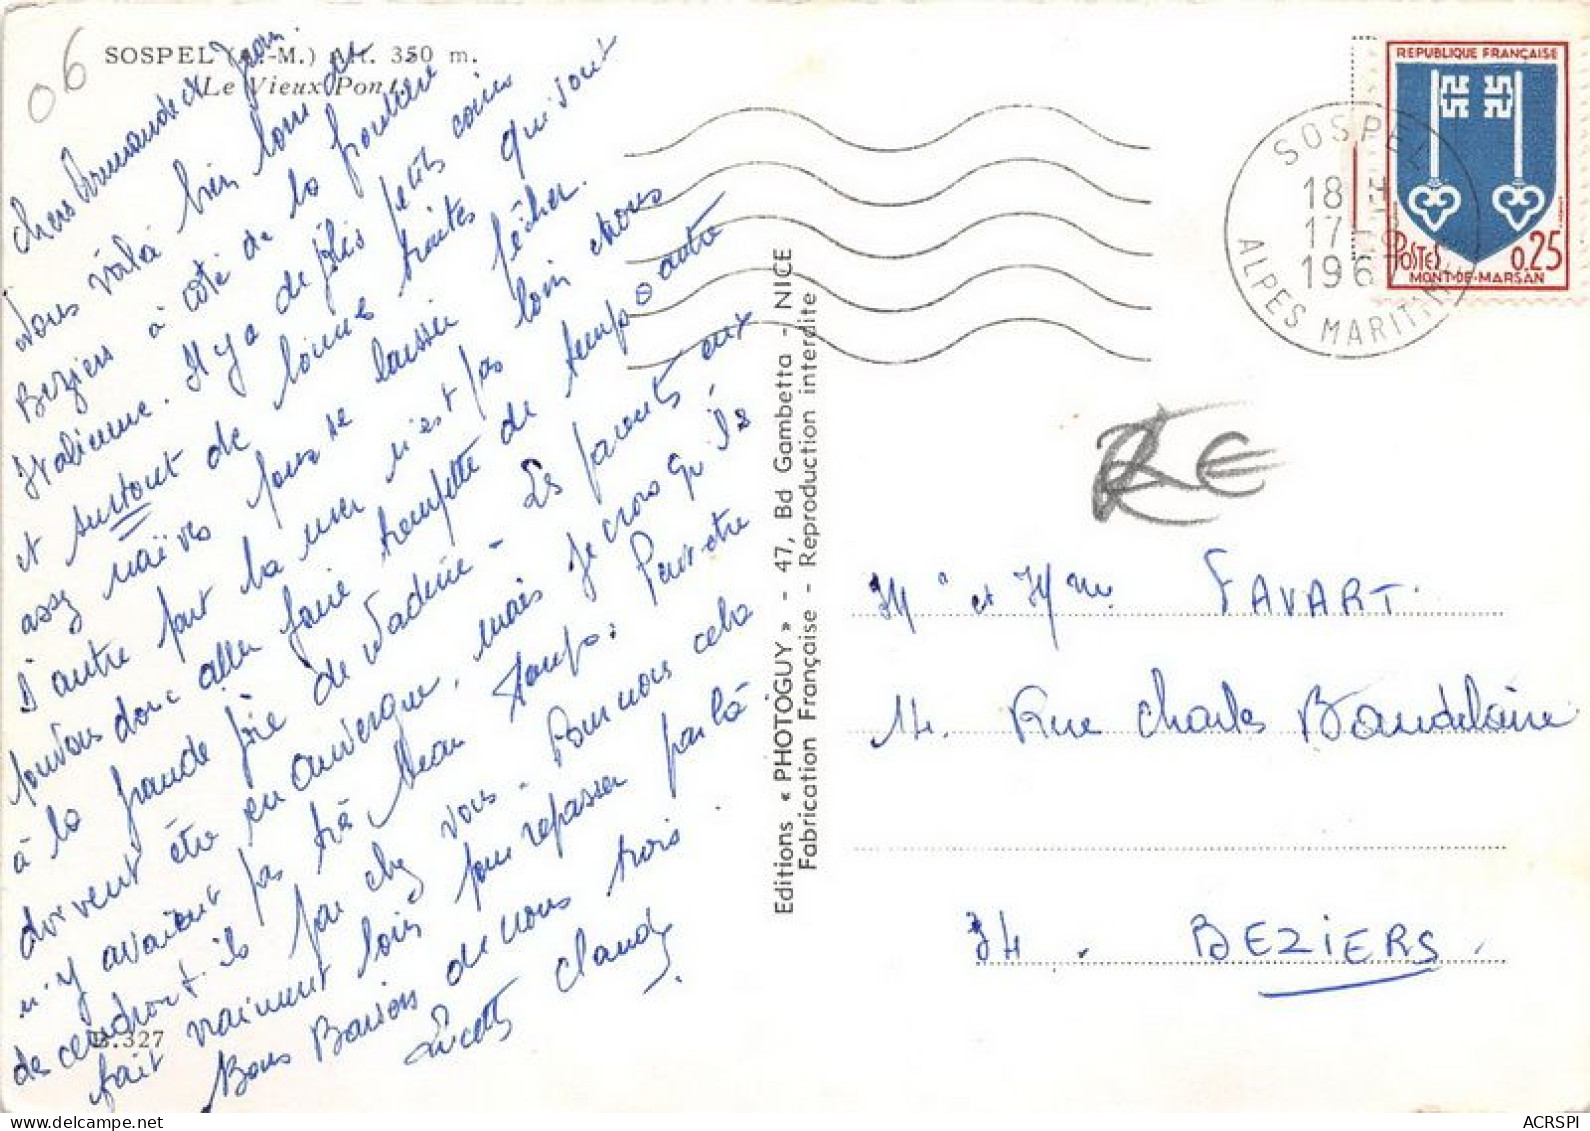 06
SOSPEL (A.-M.) Alt. 350 m.
Le Vieux Pont.
Chers Armande et Jean.
Nous voilà bien loin de
Beziers à côté de la frontière
Italienne. Il y a de jolis petits coins
et surtout de bonnes truites qui sont
assez naïves pour se laisser pêcher.
D'autre part la mer n'est pas loin nous
pouvons donc aller faire trempette de temps à autre
à la grande joie de Nadine - Les parents eux
doivent être en auvergne, mais je crois qu'ils
n'y avaient pas très beau temps. Peut-être
descendront-ils par chez vous. Pour nous cela
fait vraiment loin pour repasser par là.
Bons Baisers de nous trois.
Lucette Claude
B.327
Editions « PHOTOGUY » - 47, Bd Gambetta - NICE
Fabrication Française - Reproduction interdite
REPUBLIQUE FRANÇAISE
POSTES 0,25
MONT-DE-MARSAN
SOSPEL
18 H
17
196
ALPES MARITIMES
Mr et Mme FAVART.
14. Rue Charles Baudelaire
34. BEZIERS
ACRSPI